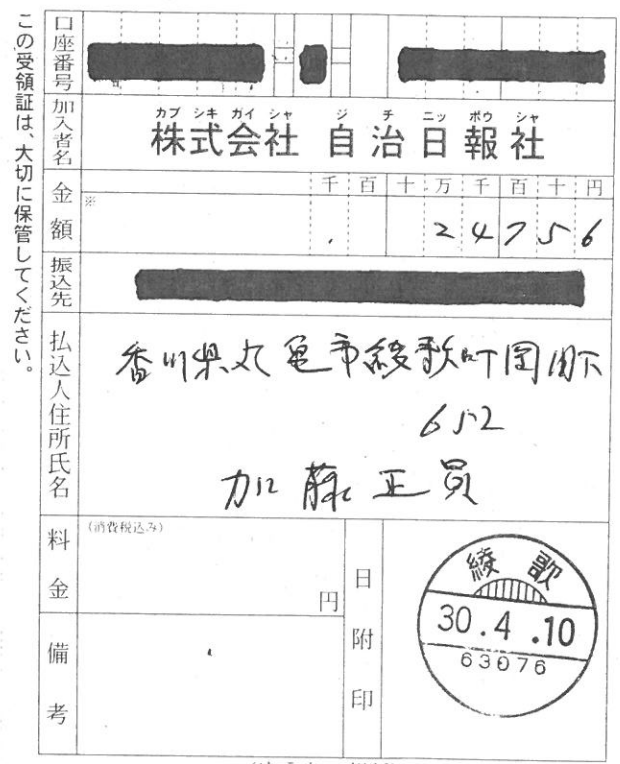 この受領証は、大切に保管してください。
口座番号
加入者名
カブ シキ ガイ シャ ジ チ ニッ ポウ シャ
株式会社 自治日報社
金額
千 百 十 万 千 百 十 円
※
24756
振込先
払込人住所氏名
香川県丸亀市綾歌町岡田下
652
加藤正員
料金
(消費税込み)
円
備考
日附印
綾歌
30.4.10
63076